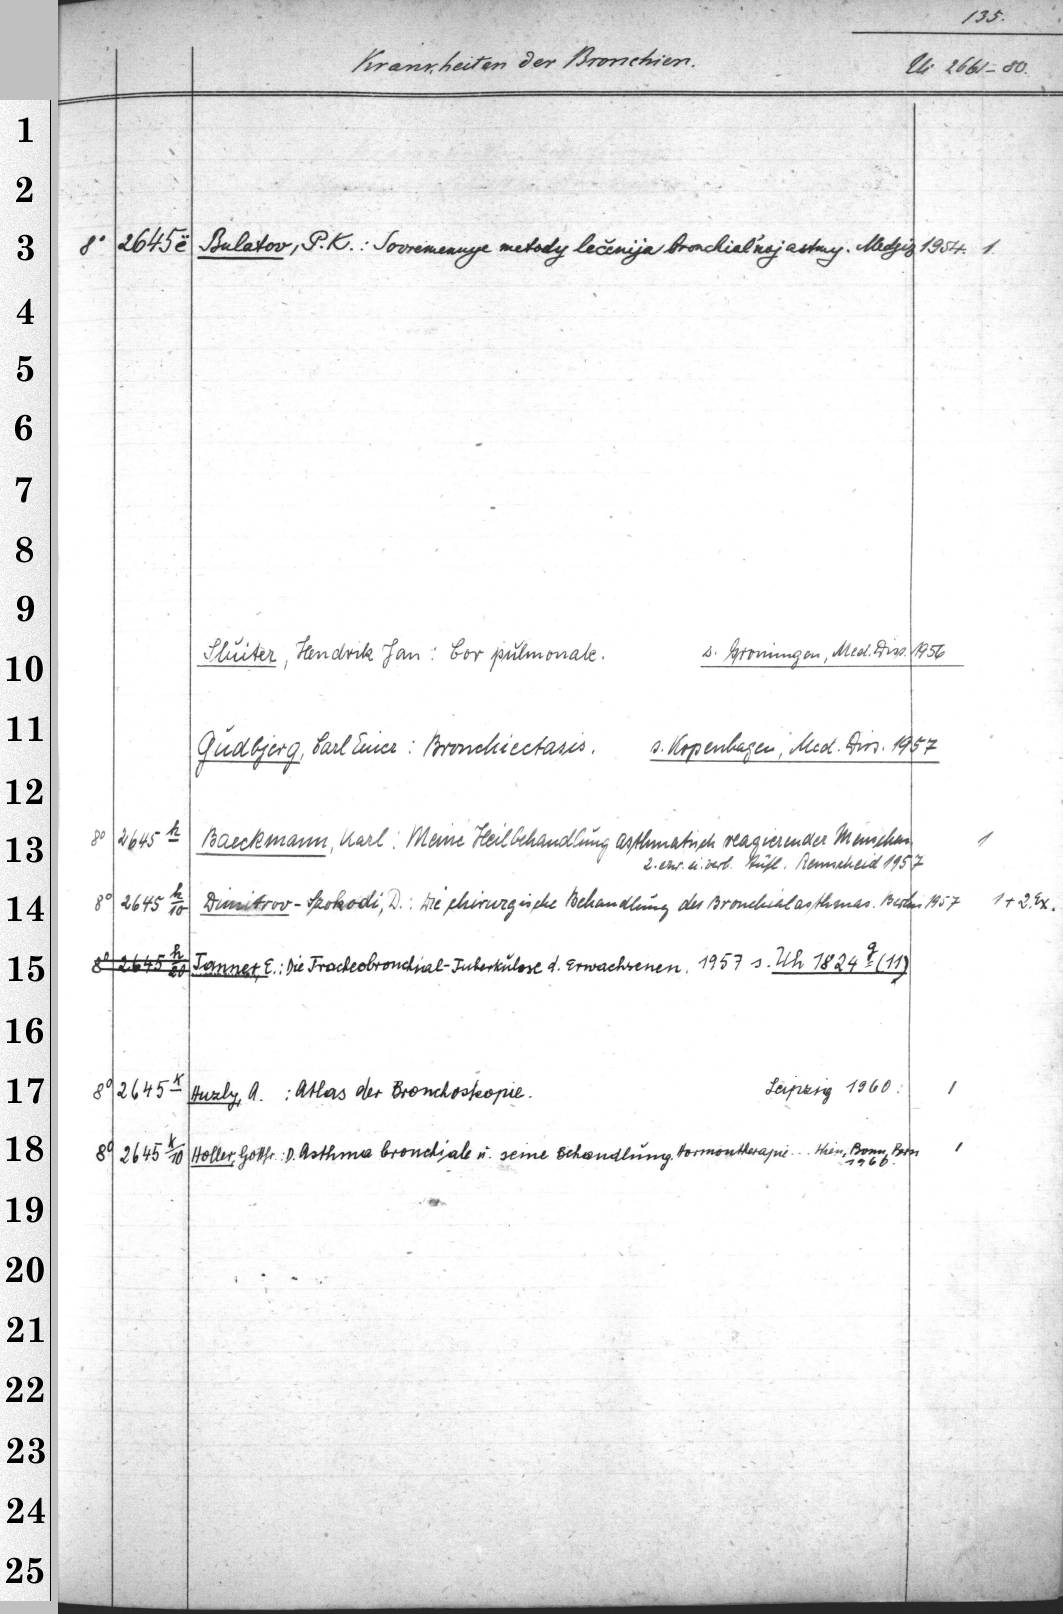 135.
Krankheiten der Bronchien. Uh 2661-80.
1
2
3 8° 2645 ë Bulatov, P.K. : Sovremennye metody lečenija bronchial'noj astmy. Medgiz 1954. 1
4
5
6
7
8
9
10 Sluiter, Hendrik Jan : Cor pulmonale. s. Groningen, Med. Diss. 1956
11 Gudbjerg, Carl Einer : Bronchiectasis. s. Kopenhagen, Med. Diss. 1957
12
13 8° 2645 h Baeckmann, Karl : Meine Heilbehandlung asthmatisch reagierender Menschen 1
2. erw. u. verb. Aufl. Remscheid 1957
14 8° 2645 h/10 Dimitrov-Szokodi, D. : Die chirurgische Behandlung des Bronchialasthmas. Berlin 1957 1 + 2. Ex.
15 8° 2645 h/20 Tanner, E. : Die Tracheobronchial-Tuberkulose d. Erwachsenen. 1957 s. Uh 1824 g (11)
16
17 8° 2645 k Huzly, A. : Atlas der Bronchoskopie. Leipzig 1960. 1
18 8° 2645 k/10 Holler, Gottfr. : D. Asthma bronchiale u. seine Behandlung. Hormontherapie... Wien, Bonn, Bern 1
1960.
19
20
21
22
23
24
25